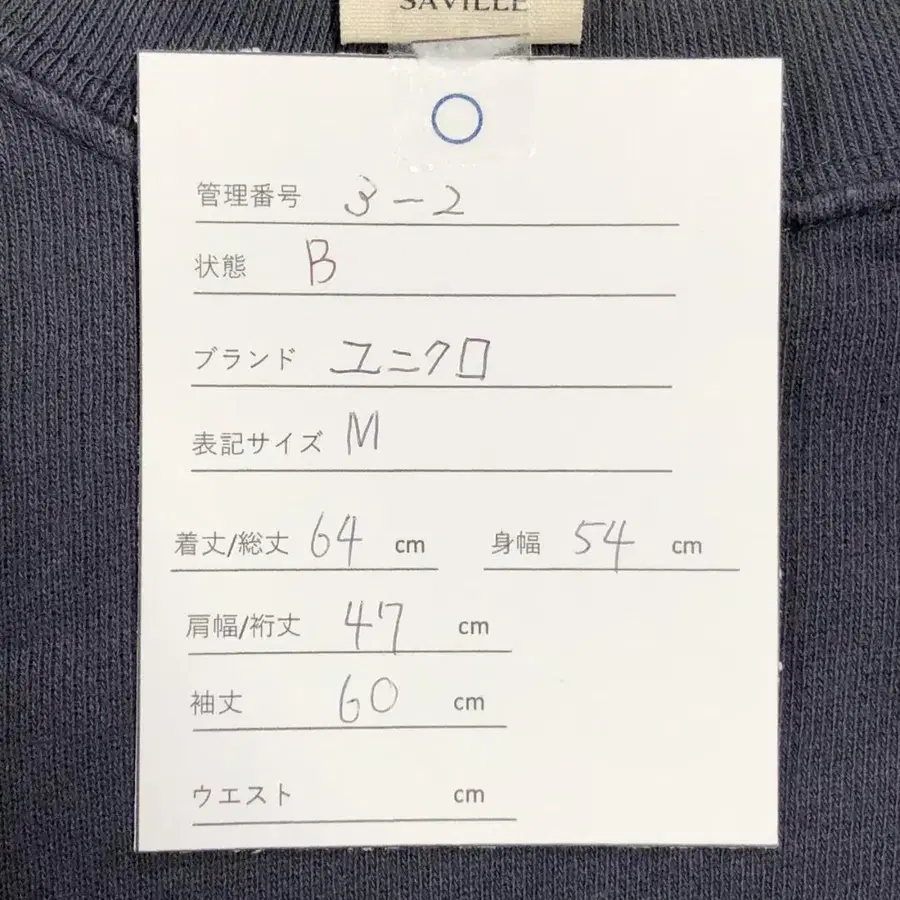 SAVILLE
管理番号 3-2
状態 B
ブランド ユニクロ
表記サイズ M
着丈/総丈 64 cm 身幅 54 cm
肩幅/裄丈 47 cm
袖丈 60 cm
ウエスト cm